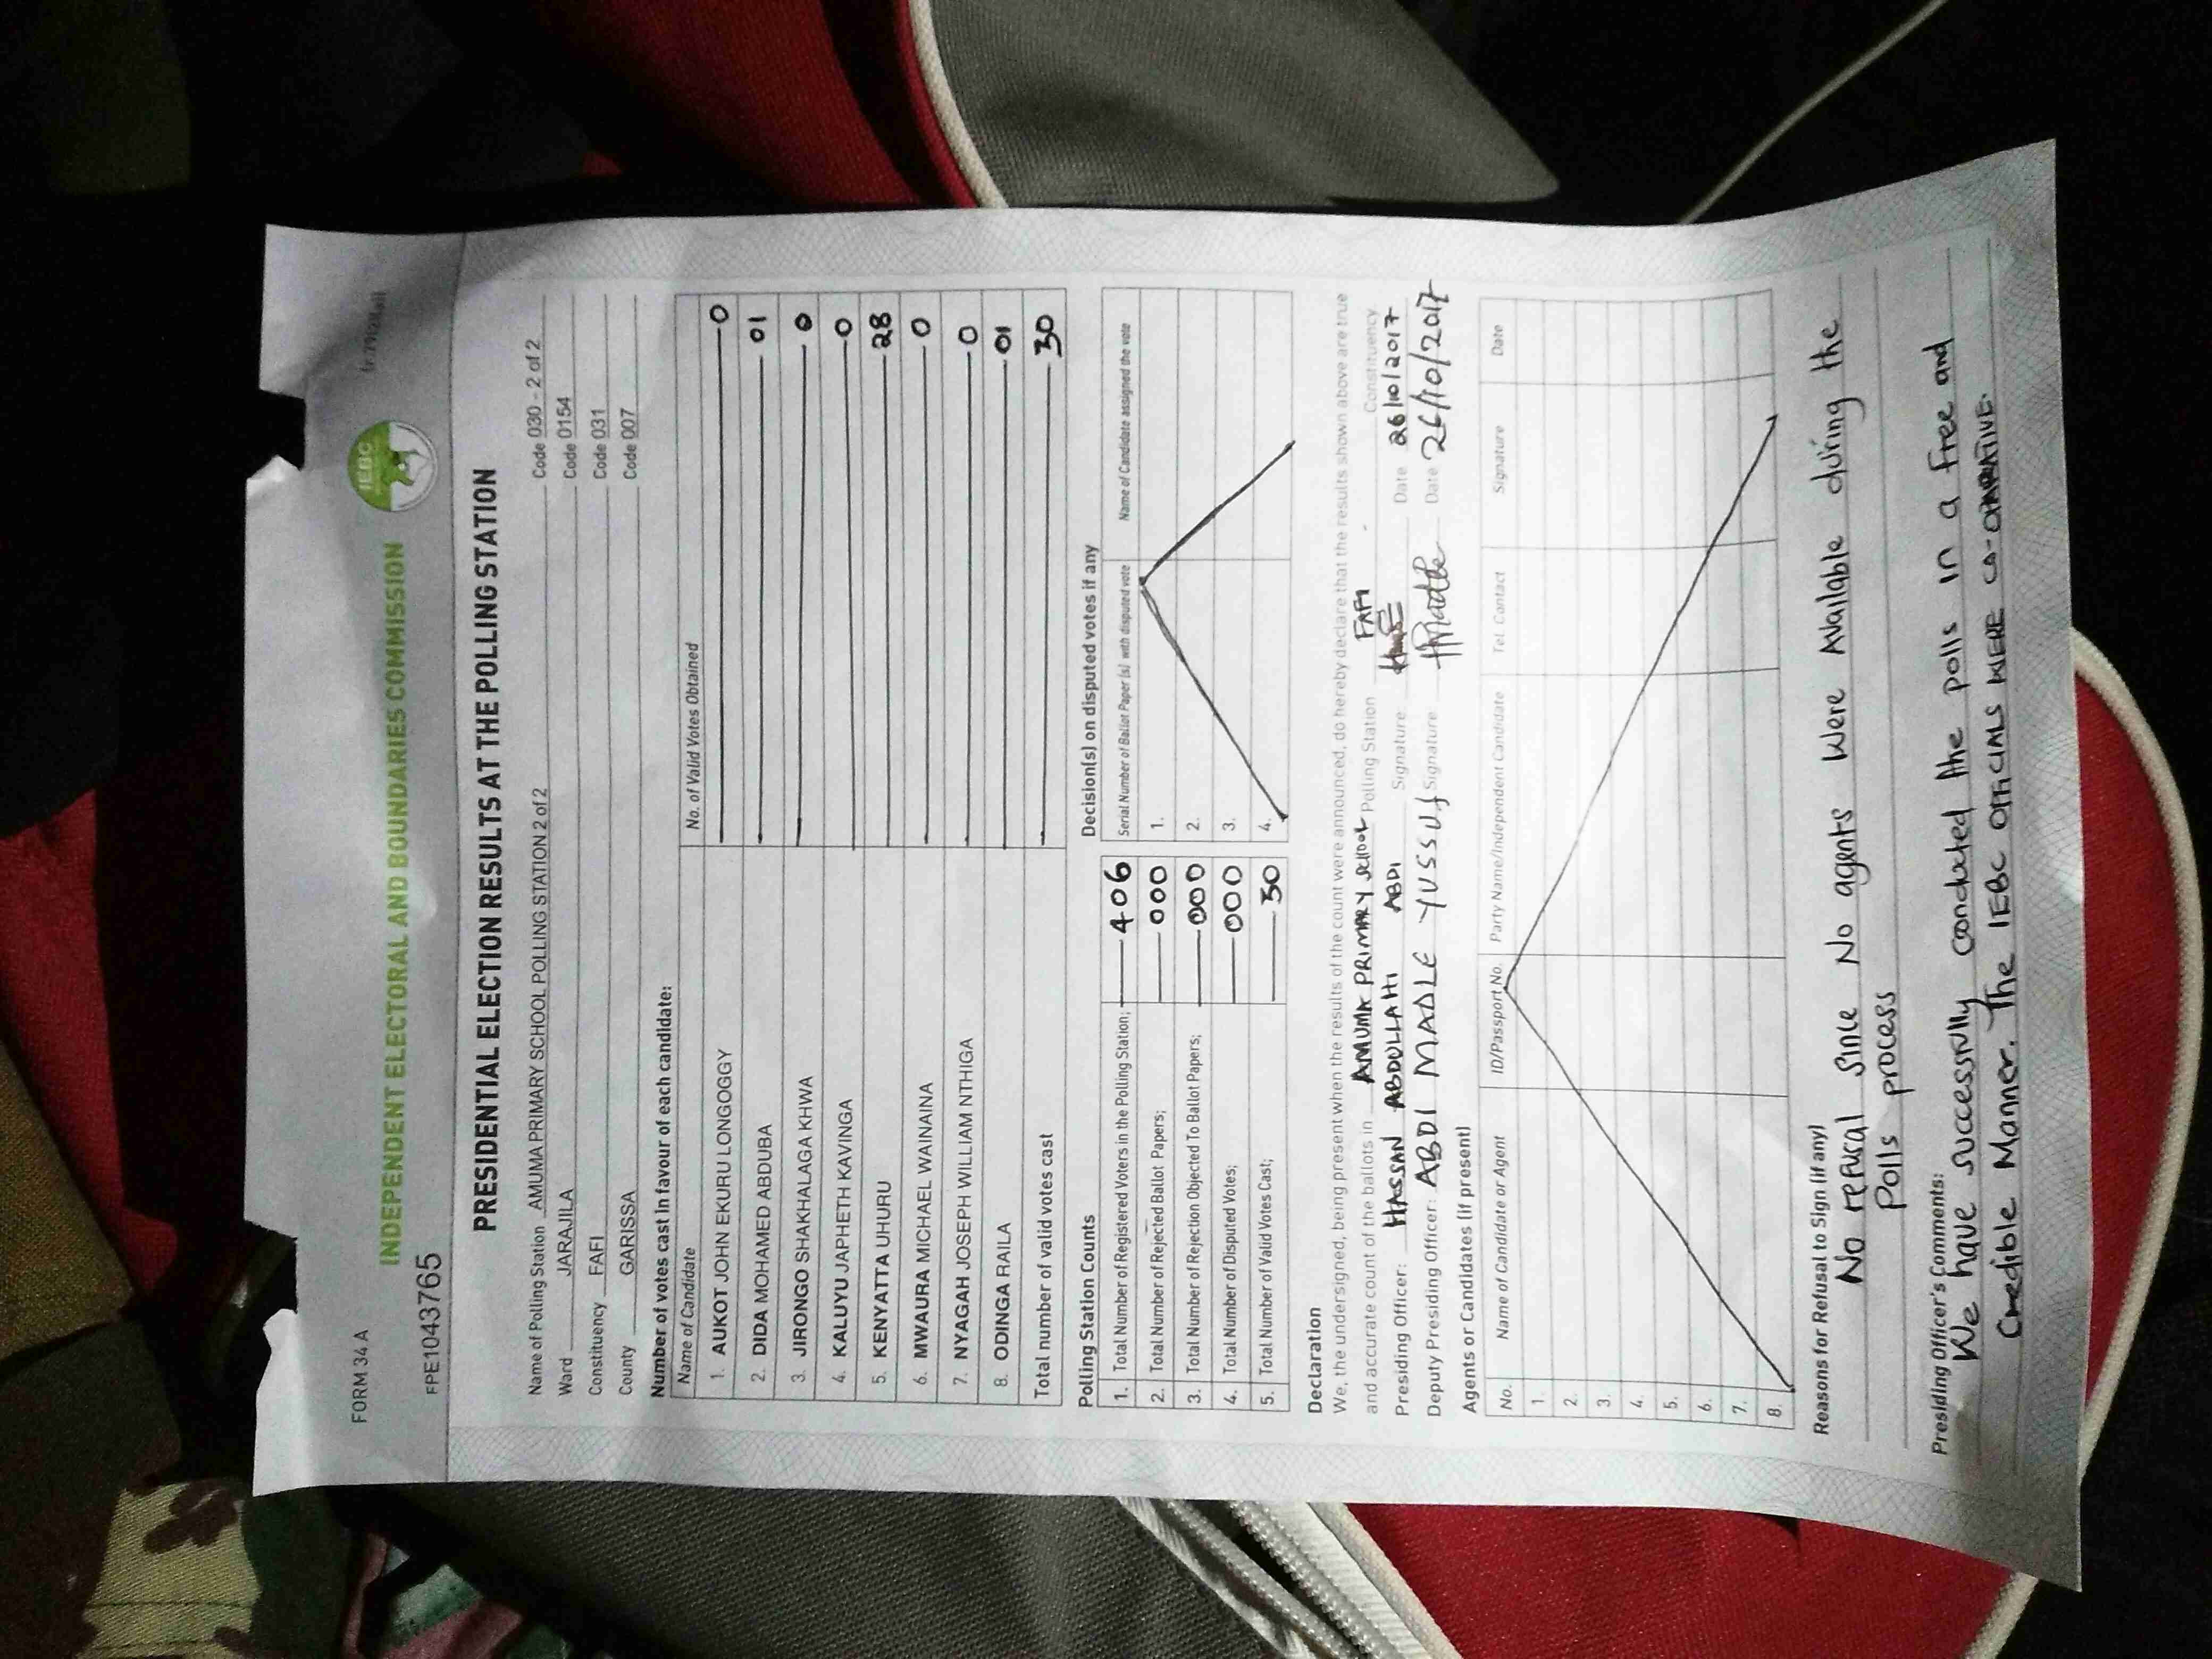 FORM 34 A
INDEPENDENT ELECTORAL AND BOUNDARIES COMMISSION
IEBC
FPE1043765
PRESIDENTIAL ELECTION RESULTS AT THE POLLING STATION
Name of Polling Station AMUMA PRIMARY SCHOOL POLLING STATION 2 of 2 Code 030 - 2 of 2
Ward JARAJILA Code 0154
Constituency FAFI Code 031
County GARISSA Code 007
Number of votes cast in favour of each candidate:
Name of Candidate No. of Valid Votes Obtained
1. AUKOT JOHN EKURU LONGOGGY 0
2. DIDA MOHAMED ABDUBA 01
3. JIRONGO SHAKHALAGA KHWA 0
4. KALUYU JAPHETH KAVINGA 0
5. KENYATTA UHURU 28
6. MWAURA MICHAEL WAINAINA 0
7. NYAGAH JOSEPH WILLIAM NTHIGA 0
8. ODINGA RAILA 01
Total number of valid votes cast 30
Polling Station Counts
1. Total Number of Registered Voters in the Polling Station; 406
2. Total Number of Rejected Ballot Papers; 000
3. Total Number of Rejection Objected To Ballot Papers; 000
4. Total Number of Disputed Votes; 000
5. Total Number of Valid Votes Cast; 30
Decision(s) on disputed votes if any
Serial Number of Ballot Paper (s) with disputed vote Name of Candidate assigned the vote
1.
2.
3.
4.
Declaration
We, the undersigned, being present when the results of the count were announced, do hereby declare that the results shown above are true
and accurate count of the ballots in AMUMA PRIMARY SCHOOL Polling Station FAFI Constituency
Presiding Officer: HASSAN ABDULLAHI ABDI Signature Date 26/10/2017
Deputy Presiding Officer: ABDI MADLE YUSSUF Signature Date 26/10/2017
Agents or Candidates (if present)
No. Name of Candidate or Agent ID/Passport No. Party Name/Independent Candidate Tel. Contact Signature Date
1.
2.
3.
4.
5.
6.
7.
8.
Reasons for Refusal to Sign (if any)
No refusal since No agents Were Available during the
Polls process
Presiding Officer's Comments:
We have successfully conducted the polls in a free and
Credible Manner. The IEBC OFFICIALS WERE CO-OPARATIVE.